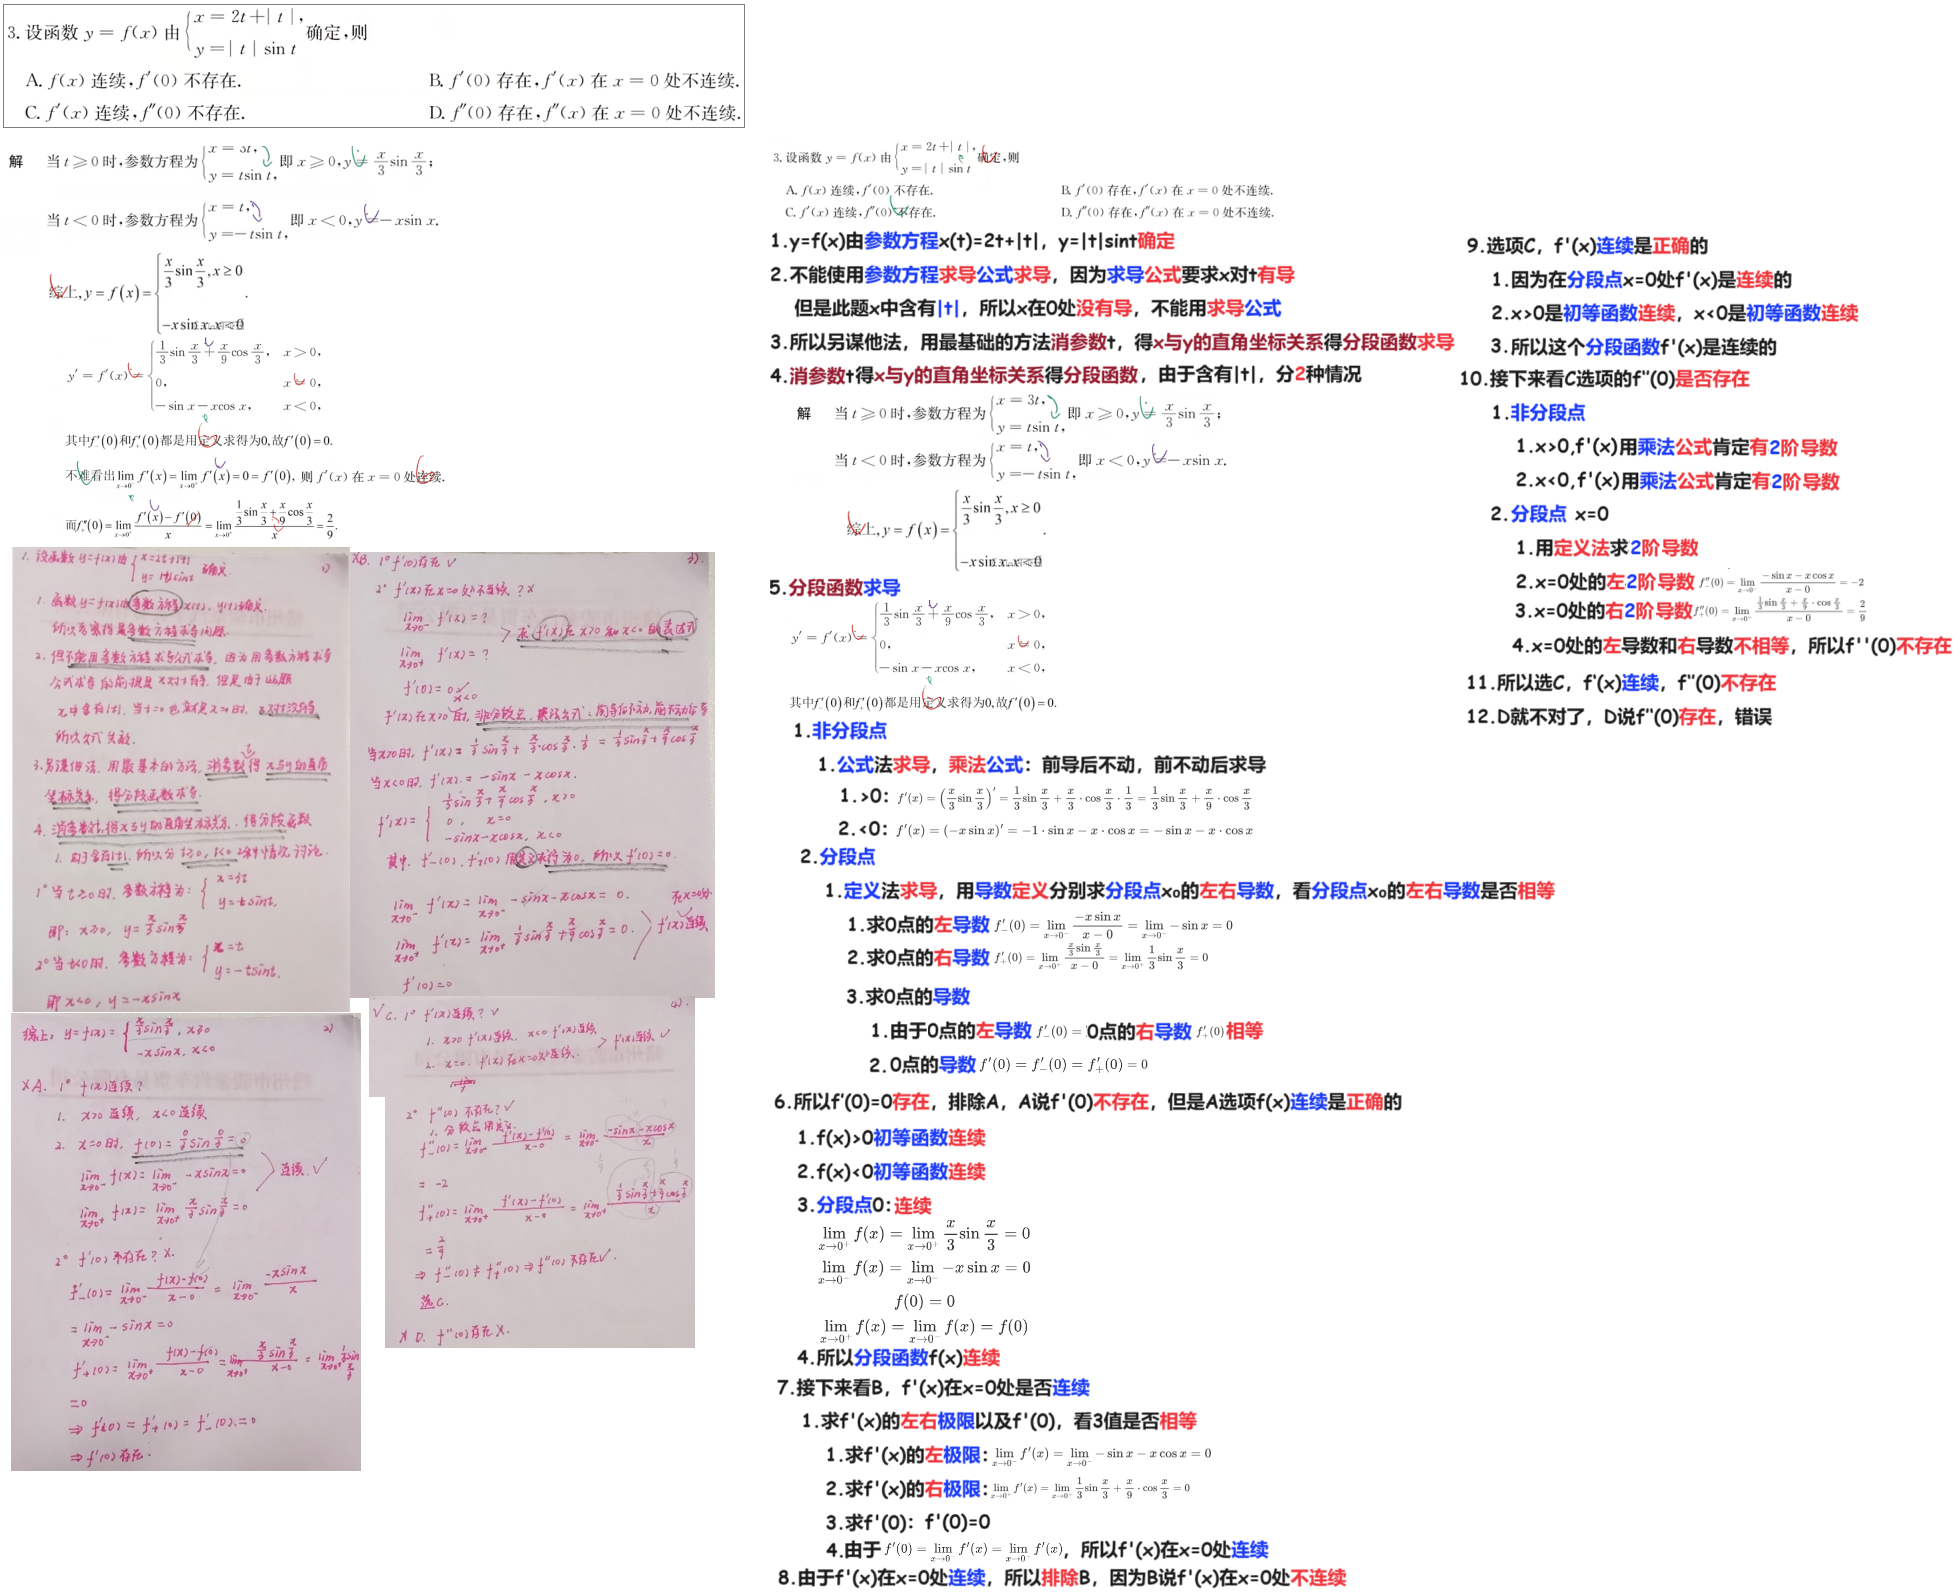 3. 设函数 y = f(x) 由 { x = 2t + | t |, y = | t | sin t 确定,则
A. f(x) 连续,f′(0) 不存在.
B. f′(0) 存在,f′(x) 在 x = 0 处不连续.
C. f′(x) 连续,f″(0) 不存在.
D. f″(0) 存在,f″(x) 在 x = 0 处不连续.
解 当 t ⩾ 0 时,参数方程为 { x = 3t, y = tsin t, 即 x ⩾ 0, y = x/3 sin x/3;
当 t < 0 时,参数方程为 { x = t, y = − tsin t, 即 x < 0, y = − xsin x.
综上, y = f(x) = { x/3 sin x/3, x ≥ 0 −x sin x, x < 0 .
y′ = f′(x) = { 1/3 sin x/3 + x/9 cos x/3, x > 0, 0, x = 0, − sin x − xcos x, x < 0,
其中f₋′(0)和f₊′(0)都是用定义求得为0,故f′(0) = 0.
不难看出 lim x→0⁻ f′(x) = lim x→0⁺ f′(x) = 0 = f′(0), 则 f′(x) 在 x = 0 处连续.
而f₊″(0) = lim x→0⁺ (f′(x) − f′(0))/x = lim x→0⁺ (1/3 sin x/3 + x/9 cos x/3)/x = 2/9.
1. 设函数 y=f(x)由 { x=2t+|t| y=|t|sint 确定. 1)
1. 函数 y=f(x)由参数方程 x(t), y(t)确定.
所以考察得是参数方程求导问题.
2. 但不能用参数方程求导公式求导, 因为用参数方程求导
公式求导的前提是 x对t有导, 但是由于此题
x中含有|t|, 当t=0也就是x=0时, x对t没有导
所以公式失效.
3. 另谋他法, 用最基本的方法, 消参数t得 x与y的直角
坐标关系, 得分段函数求导.
4. 消参数t,得x与y的直角坐标关系, 得分段函数
1. 由于含有|t|, 所以分 t≥0, t<0 2种情况讨论.
1° 当t≥0时, 参数方程为: { x=3t y=tsint,
即: x≥0, y= x/3 sin x/3
2° 当t<0时, 参数方程为: { x=t y=-tsint,
即x<0, y=-xsinx
综上, y=f(x)= { x/3 sin x/3, x≥0 -xsinx, x<0 2)
×A. 1° f(x)连续?
1. x>0 连续, x<0 连续
2. x=0时, f(0)= 0/3 sin 0/3 =0
lim x→0⁻ f(x)= lim x→0⁻ -xsinx=0
lim x→0⁺ f(x)= lim x→0⁺ x/3 sin x/3 =0
> 连续. ✓
2° f′(0)不存在? ×.
f′₋(0)= lim x→0⁻ (f(x)-f(0))/(x-0) = lim x→0⁻ (-xsinx)/x
= lim x→0⁻ -sinx=0
f′₊(0)= lim x→0⁺ (f(x)-f(0))/(x-0) = lim x→0⁺ (x/3 sin x/3)/(x-0) = lim x→0⁺ 1/3 sin x/3
=0
⇒ f′(0) = f′₊(0) = f′₋(0)=0
⇒ f′(0)存在.
×B. 1° f′(0)存在 ✓ 3).
2° f′(x)在x=0处不连续? ×
lim x→0⁻ f′(x)=?
lim x→0⁺ f′(x)=?
> 求 f′(x)在 x>0 和 x<0 的表达式
f′(0)=0 ✓
f′(x)在x>0, x<0时, 非分段点. 乘法公式: 前导后不动, 前不动后导
当x>0时, f′(x)= 1/3 sin x/3 + x/3·cos x/3·1/3 = 1/3 sin x/3 + x/9 cos x/3
当x<0时, f′(x)= -sinx-xcosx.
f′(x)= { 1/3 sin x/3 + x/9 cos x/3, x>0 0, x=0 -sinx-xcosx, x<0
其中, f′₋(0), f′₊(0) 用定义求得为0, 所以 f′(0)=0.
lim x→0⁻ f′(x)= lim x→0⁻ -sinx-xcosx = 0.
lim x→0⁺ f′(x)= lim x→0⁺ 1/3 sin x/3 + x/9 cos x/3 = 0.
在x=0处
f′(x)连续
f′(0)=0
✓C. 1° f′(x)连续? ✓ 4).
1. x>0 f′(x)连续, x<0 f′(x)连续
2. x=0. f′(x)在x=0处连续.
> f′(x)连续 ✓
2° f″(0) 不存在? ✓
1. 分段点用定义.
f″₋(0)= lim x→0⁻ (f′(x)-f′(0))/(x-0) = lim x→0⁻ (-sinx-xcosx)/x
= -2
f″₊(0)= lim x→0⁺ (f′(x)-f′(0))/(x-0) = lim x→0⁺ (1/3 sin x/3 + x/9 cos x/3)/x
= 2/9
⇒ f″₋(0) ≠ f″₊(0) ⇒ f″(0) 不存在✓.
选C.
× D. f″(0)存在 ×.
3. 设函数 y = f(x) 由 { x = 2t + | t |, y = | t | sin t 确定,则
A. f(x) 连续,f′(0) 不存在.
B. f′(0) 存在,f′(x) 在 x = 0 处不连续.
C. f′(x) 连续,f″(0) 不存在.
D. f″(0) 存在,f″(x) 在 x = 0 处不连续.
1.y=f(x)由参数方程x(t)=2t+|t|，y=|t|sint确定
2.不能使用参数方程求导公式求导，因为求导公式要求x对t有导
但是此题x中含有|t|，所以x在0处没有导，不能用求导公式
3.所以另谋他法，用最基础的方法消参数t，得x与y的直角坐标关系得分段函数求导
4.消参数t得x与y的直角坐标关系得分段函数，由于含有|t|，分2种情况
解 当 t ⩾ 0 时,参数方程为 { x = 3t, y = tsin t, 即 x ⩾ 0, y = x/3 sin x/3;
当 t < 0 时,参数方程为 { x = t, y = − tsin t, 即 x < 0, y = − xsin x.
综上, y = f(x) = { x/3 sin x/3, x ≥ 0 −x sin x, x < 0 .
5.分段函数求导
y′ = f′(x) = { 1/3 sin x/3 + x/9 cos x/3, x > 0, 0, x = 0, − sin x − xcos x, x < 0,
其中f₋′(0)和f₊′(0)都是用定义求得为0,故f′(0) = 0.
1.非分段点
1.公式法求导，乘法公式：前导后不动，前不动后求导
1.>0: f′(x) = (x/3 sin x/3)′ = 1/3 sin x/3 + x/3 · cos x/3 · 1/3 = 1/3 sin x/3 + x/9 · cos x/3
2.<0: f′(x) = (−x sin x)′ = −1 · sin x − x · cos x = − sin x − x · cos x
2.分段点
1.定义法求导，用导数定义分别求分段点x₀的左右导数，看分段点x₀的左右导数是否相等
1.求0点的左导数 f′₋(0) = lim x→0⁻ (−x sin x)/(x − 0) = lim x→0⁻ − sin x = 0
2.求0点的右导数 f′₊(0) = lim x→0⁺ (x/3 sin x/3)/(x − 0) = lim x→0⁺ 1/3 sin x/3 = 0
3.求0点的导数
1.由于0点的左导数 f′₋(0) = 0点的右导数 f′₊(0) 相等
2.0点的导数 f′(0) = f′₋(0) = f′₊(0) = 0
6.所以f'(0)=0存在，排除A，A说f'(0)不存在，但是A选项f(x)连续是正确的
1.f(x)>0初等函数连续
2.f(x)<0初等函数连续
3.分段点0：连续
lim x→0⁺ f(x) = lim x→0⁺ x/3 sin x/3 = 0
lim x→0⁻ f(x) = lim x→0⁻ −x sin x = 0
f(0) = 0
lim x→0⁺ f(x) = lim x→0⁻ f(x) = f(0)
4.所以分段函数f(x)连续
7.接下来看B，f'(x)在x=0处是否连续
1.求f'(x)的左右极限以及f'(0)，看3值是否相等
1.求f'(x)的左极限: lim x→0⁻ f′(x) = lim x→0⁻ − sin x − x cos x = 0
2.求f'(x)的右极限: lim x→0⁺ f′(x) = lim x→0⁺ 1/3 sin x/3 + x/9 · cos x/3 = 0
3.求f'(0)：f'(0)=0
4.由于 f′(0) = lim x→0 f′(x) = lim x→0⁻ f′(x)，所以f'(x)在x=0处连续
8.由于f'(x)在x=0处连续，所以排除B，因为B说f'(x)在x=0处不连续
9.选项C，f'(x)连续是正确的
1.因为在分段点x=0处f'(x)是连续的
2.x>0是初等函数连续，x<0是初等函数连续
3.所以这个分段函数f'(x)是连续的
10.接下来看C选项的f"(0)是否存在
1.非分段点
1.x>0,f'(x)用乘法公式肯定有2阶导数
2.x<0,f'(x)用乘法公式肯定有2阶导数
2.分段点 x=0
1.用定义法求2阶导数
2.x=0处的左2阶导数 f″₋(0) = lim x→0⁻ (− sin x − x cos x)/(x − 0) = −2
3.x=0处的右2阶导数 f″₊(0) = lim x→0⁺ (1/3 sin x/3 + x/9 · cos x/3)/(x − 0) = 2/9
4.x=0处的左导数和右导数不相等，所以f''(0)不存在
11.所以选C，f'(x)连续，f"(0)不存在
12.D就不对了，D说f"(0)存在，错误